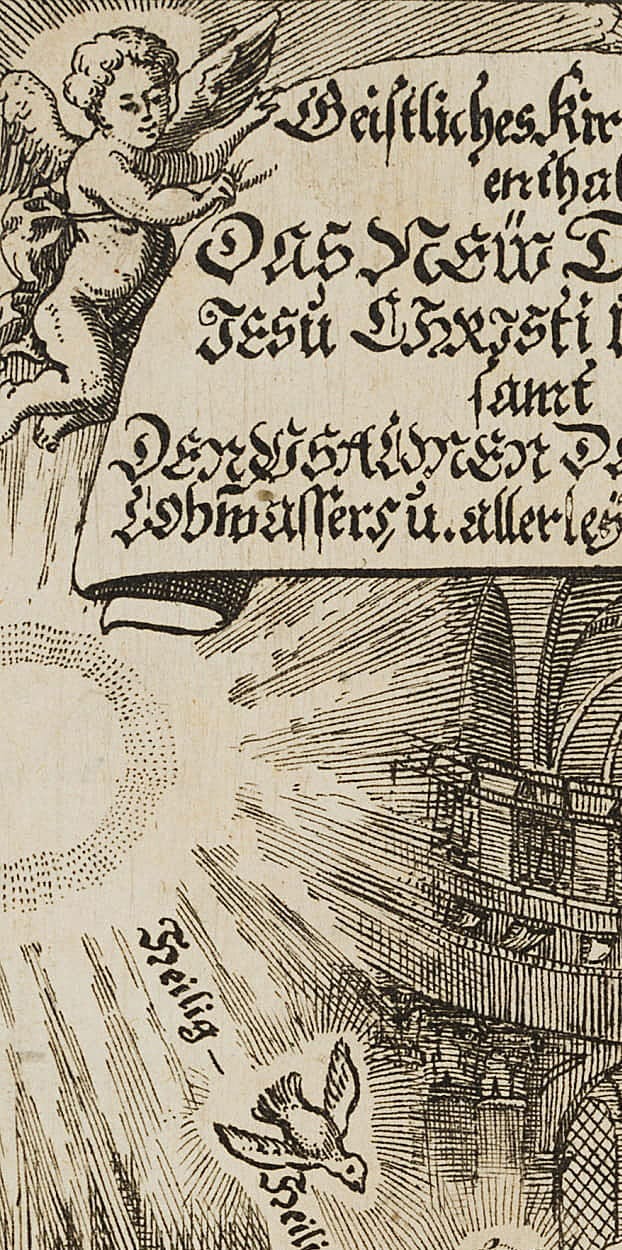 Geistliches Kir
enthal
DAS NEŴ T
JESU CHRISTI
samt
DEN PSALMEN D
Lobwassers, u. allerleÿ
Heilig -
Heili